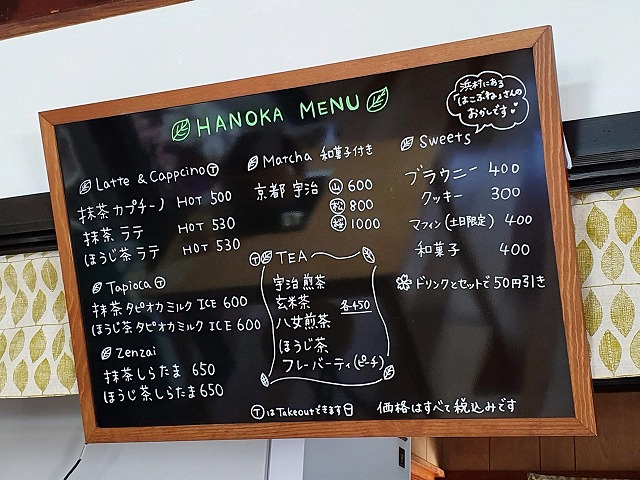 HANOKA MENU
Latte & Cappcino Ⓣ
抹茶 カプチーノ HOT 500
抹茶 ラテ HOT 530
ほうじ茶 ラテ HOT 530
Tapioca Ⓣ
抹茶 タピオカミルク ICE 600
ほうじ茶 タピオカミルク ICE 600
Zenzai
抹茶しらたま 650
ほうじ茶しらたま 650
Matcha 和菓子付き
京都 宇治 山 600
松 800
桜 1000
Ⓣ TEA
宇治煎茶
玄米茶 各450
八女煎茶
ほうじ茶
フレーバーティ(ピーチ)
浜村にある
「はこぶね」さんの
おかしです♥
Sweets
ブラウニー 400
クッキー 300
マフィン(土日限定) 400
和菓子 400
ドリンクとセットで50円引き
ⓉはTakeoutできます
価格はすべて税込みです